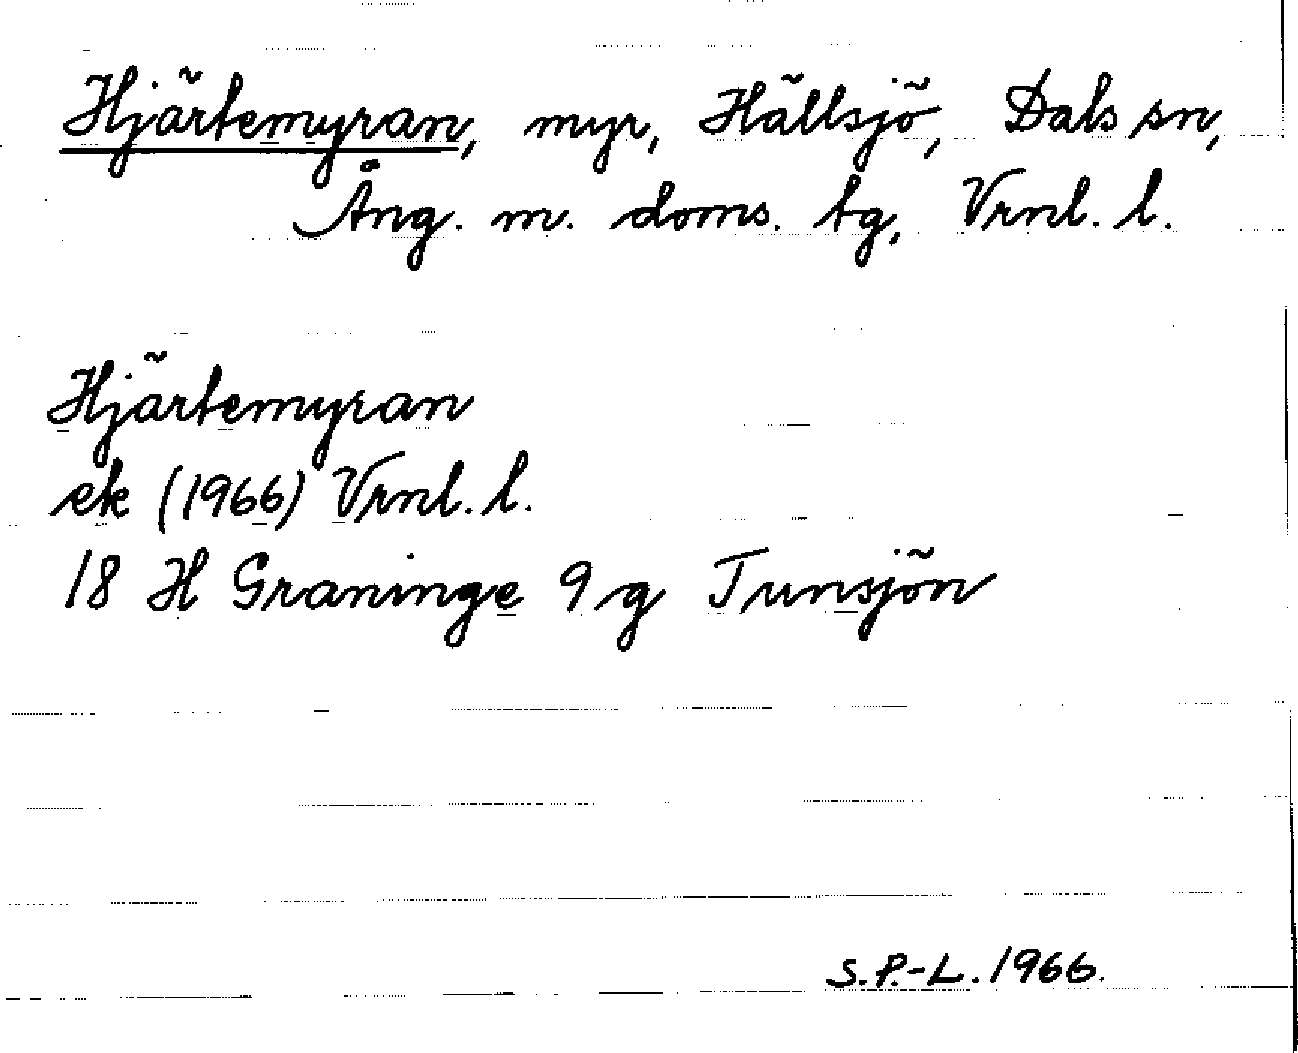 Hjärtemyran, myr, Hällsjö, Dals sn,
Ång. m. doms. tg, Vrnl. l.
Hjärtemyran
ek (1966) Vrnl. l.
18 H Graninge 9 g Tunsjön
S.P.-L. 1966.